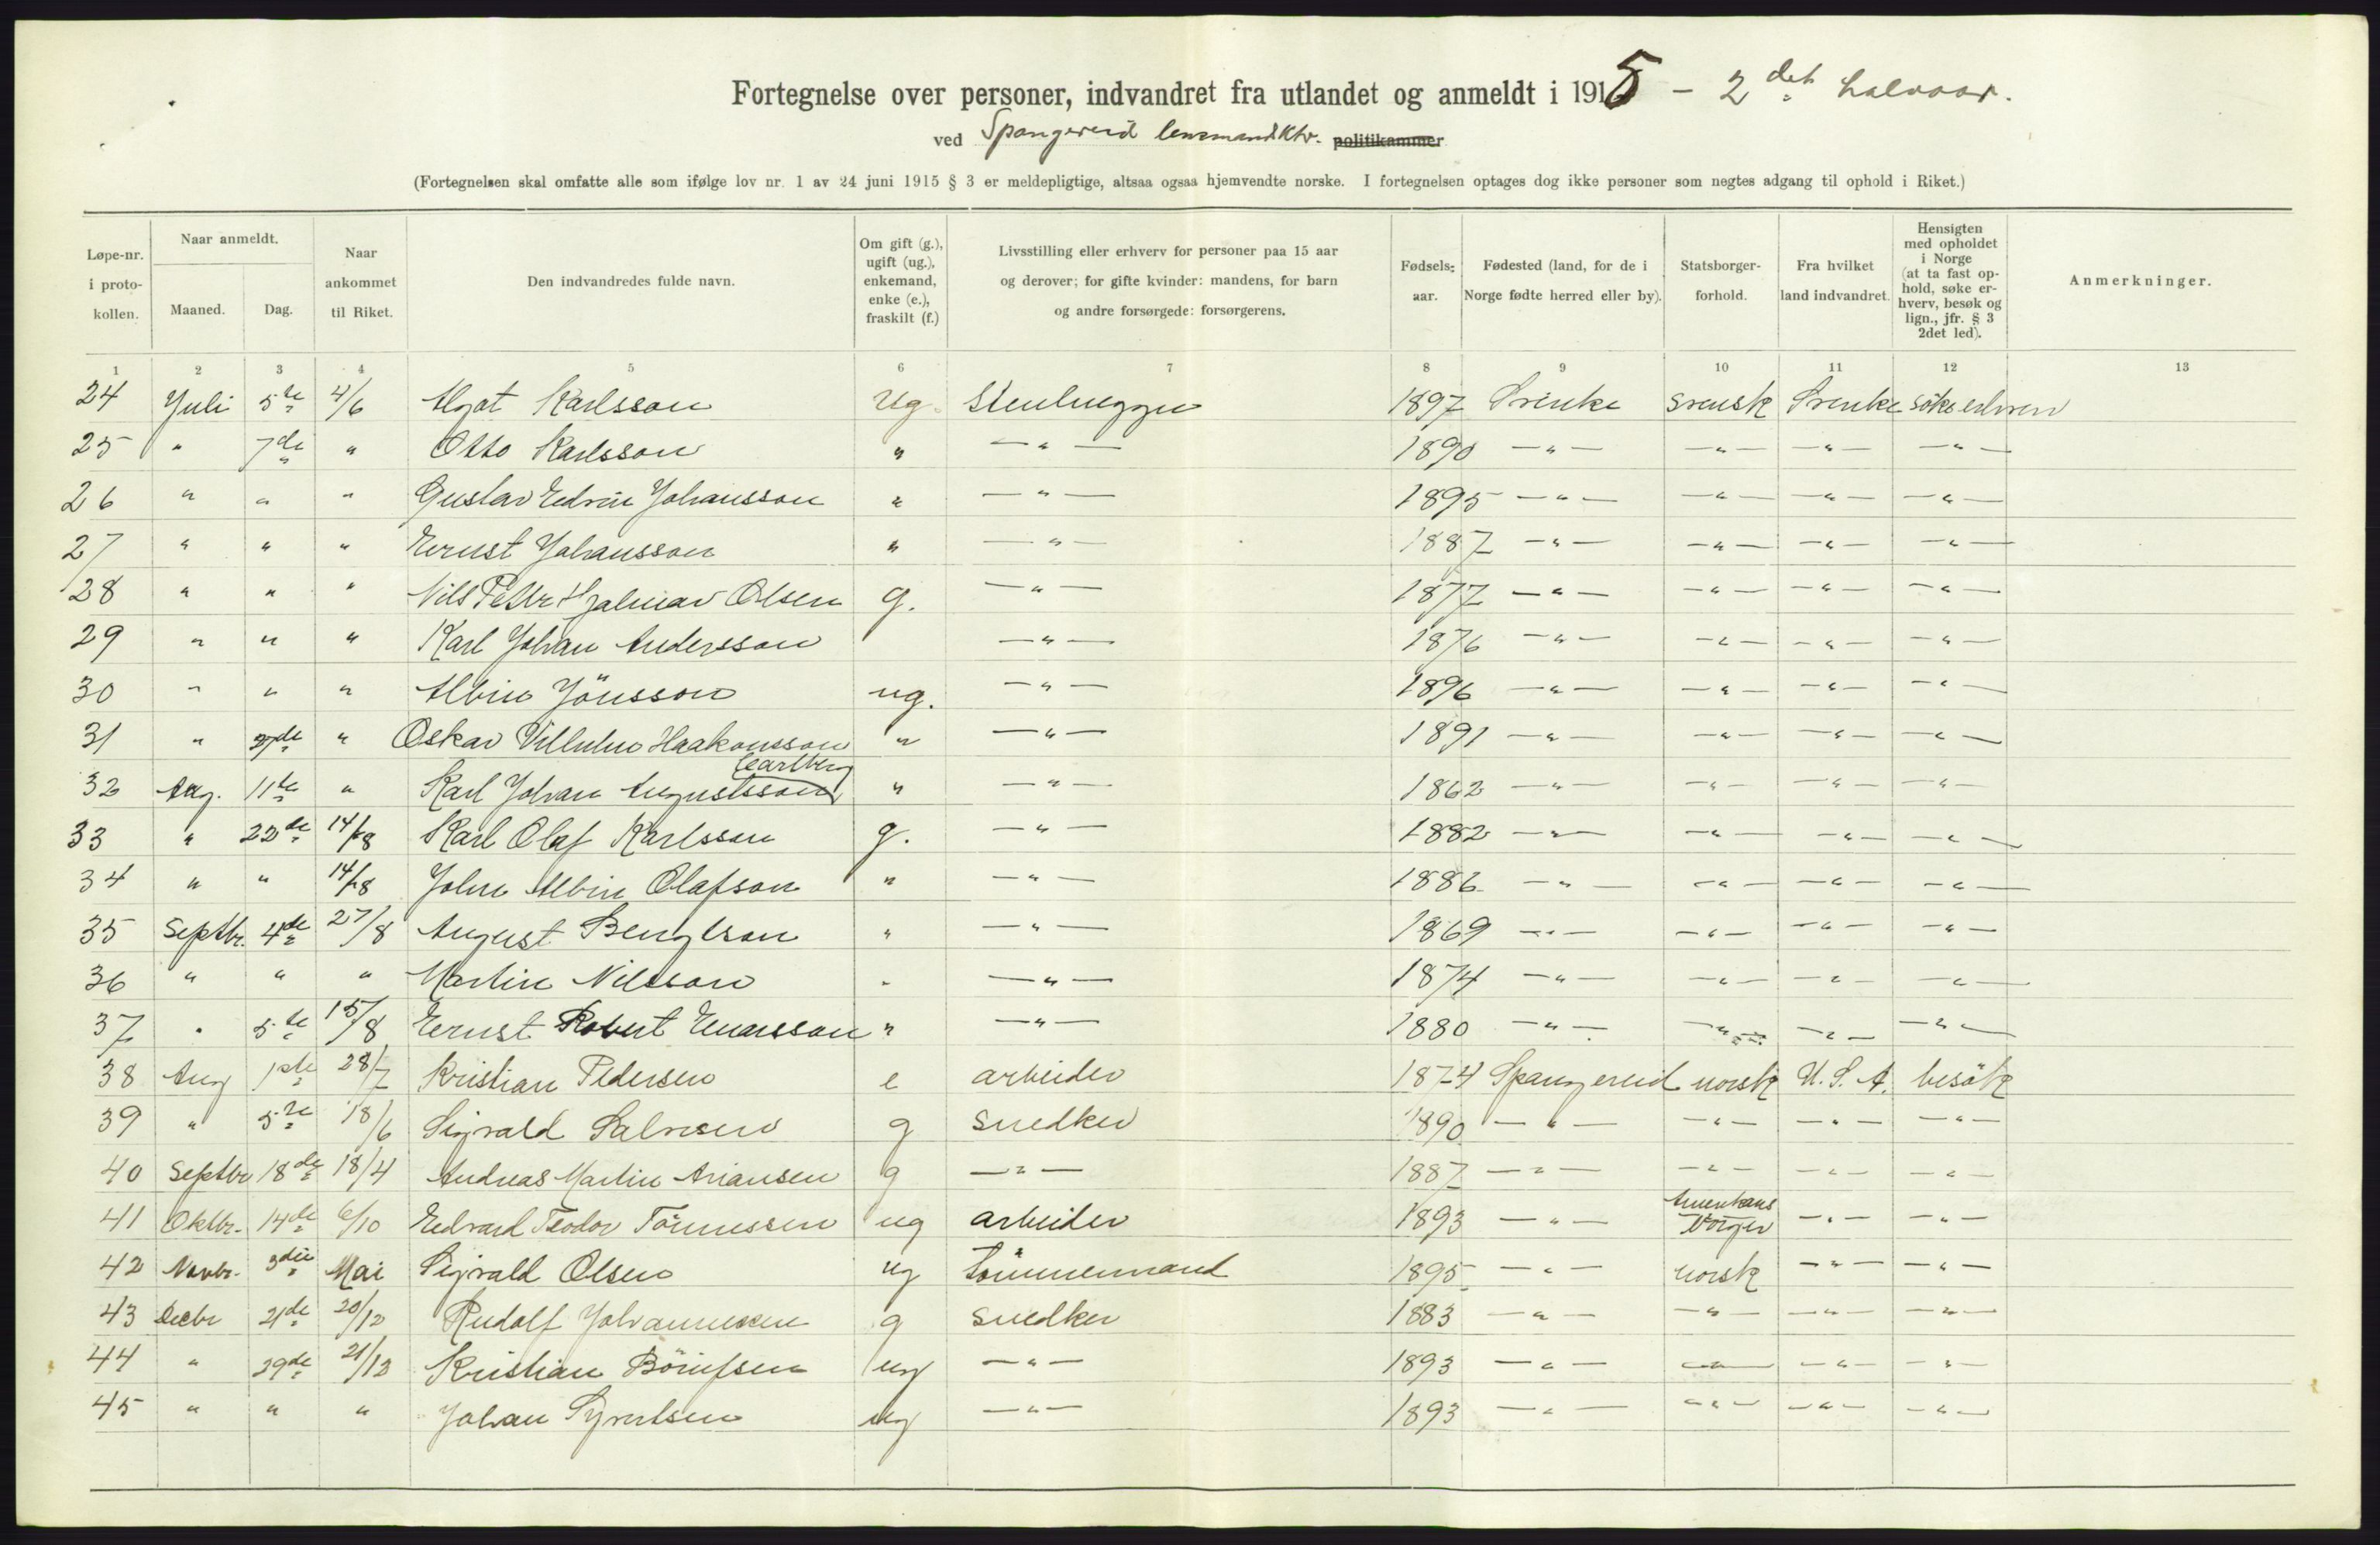 Fortegnelse over personer, indvandret fra utlandet og anmeldt i 1915 – 2det halvaar.
ved Spangereid lensmandsktr. politikammer
(Fortegnelsen skal omfatte alle som ifølge lov nr. 1 av 24 juni 1915 § 3 er meldepligtige, altsaa ogsaa hjemvendte norske. I fortegnelsen optages dog ikke personer som negtes adgang til ophold i Riket.)
Løpe-nr. i proto-kollen. Naar anmeldt. Maaned. Dag. Naar ankommet til Riket. Den indvandredes fulde navn. Om gift (g.), ugift (ug.), enkemand, enke (e.), fraskilt (f.) Livsstilling eller erhverv for personer paa 15 aar og derover; for gifte kvinder: mandens, for barn og andre forsørgede: forsørgerens. Fødsels-aar. Fødested (land, for de i Norge fødte herred eller by). Statsborger-forhold. Fra hvilket land indvandret. Hensigten med opholdet i Norge (at ta fast op-hold, søke er-hverv, besøk og lign., jfr. § 3 2det led). Anmerkninger.
1 2 3 4 5 6 7 8 9 10 11 12 13
24 Juli 5te 4/6 Algot Karlsson ug. Stenhugger 1897 Sverike svensk Sverike söke erhverv
25 " 7de " Otto Karlsson " — " — 1890 — " — — " — — " — — " —
26 " " " Gustav Edvin Johansson " — " — 1895 — " — — " — — " — — " —
27 " " " Ernst Johansson " — " — 1887 — " — — " — — " — — " —
28 " " " Nils Petter Hjalmar Olsen g. — " — 1877 — " — — " — — " — — " —
29 " " " Karl Johan Andersson — " — 1876 — " — — " — — " — — " —
30 " " " Albin Jönsson ug. — " — 1896 — " — — " — — " — — " —
31 " 27de " Oskar Vilhelm Haakonsson " — " — 1891 — " — — " — — " — — " —
Carlberg
32 Aug. 11te " Karl Johan Augustsson " — " — 1862 — " — — " — — " — — " —
33 " 22de 14/8 Karl Olaf Karlsson g. — " — 1882 — " — — " — — " — — " —
34 " " 14/8 John Albin Olafson " — " — 1886 — " — — " — — " — — " —
35 Septbr. 4de 27/8 August Bengtson " — " — 1869 — " — — " — — " — — " —
36 " " " Martin Nilsson " — " — 1874 — " — — " — — " — — " —
37 " 5te 15/8 Ernst Robert Enarsson " — " — 1880 — " — — " — — " — — " —
38 Aug 1ste 28/7 Kristian Pedersen e arbeider 1874 Spangereid norsk U.S.A. besök
39 " 5te 18/6 Sigvald Salvesen g snedker 1890 — " — — " — — " — — " —
40 Septbr 18de 18/4 Andreas Martin Ariansen g — " — 1887 — " — — " — — " — — " —
41 Oktbr. 14de 6/10 Edvard Teodor Tönnessen ug arbeider 1893 — " — Amerikans borger — " — — " —
42 Novbr. 3die Mai Sigvald Olsen ug tömmermand 1895 — " — norsk — " — — " —
43 Decbr 21de 20/12 Rudolf Johannesen g snedker 1883 — " — — " — — " — — " —
44 " 29de 21/12 Kristian Börufsen ug — " — 1893 — " — — " — — " — — " —
45 " " " Johan Syvertsen ug — " — 1893 — " — — " — — " — — " —